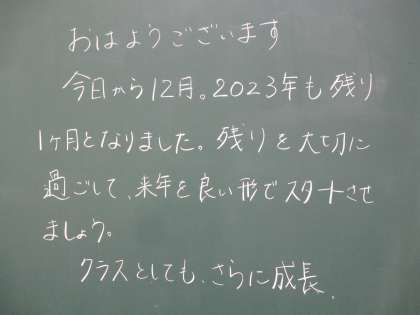 おはようございます
今日から12月。2023年も残り
1ヶ月となりました。残りを大切に
過ごして、来年を良い形でスタートさせ
ましょう。
クラスとしても、さらに成長、